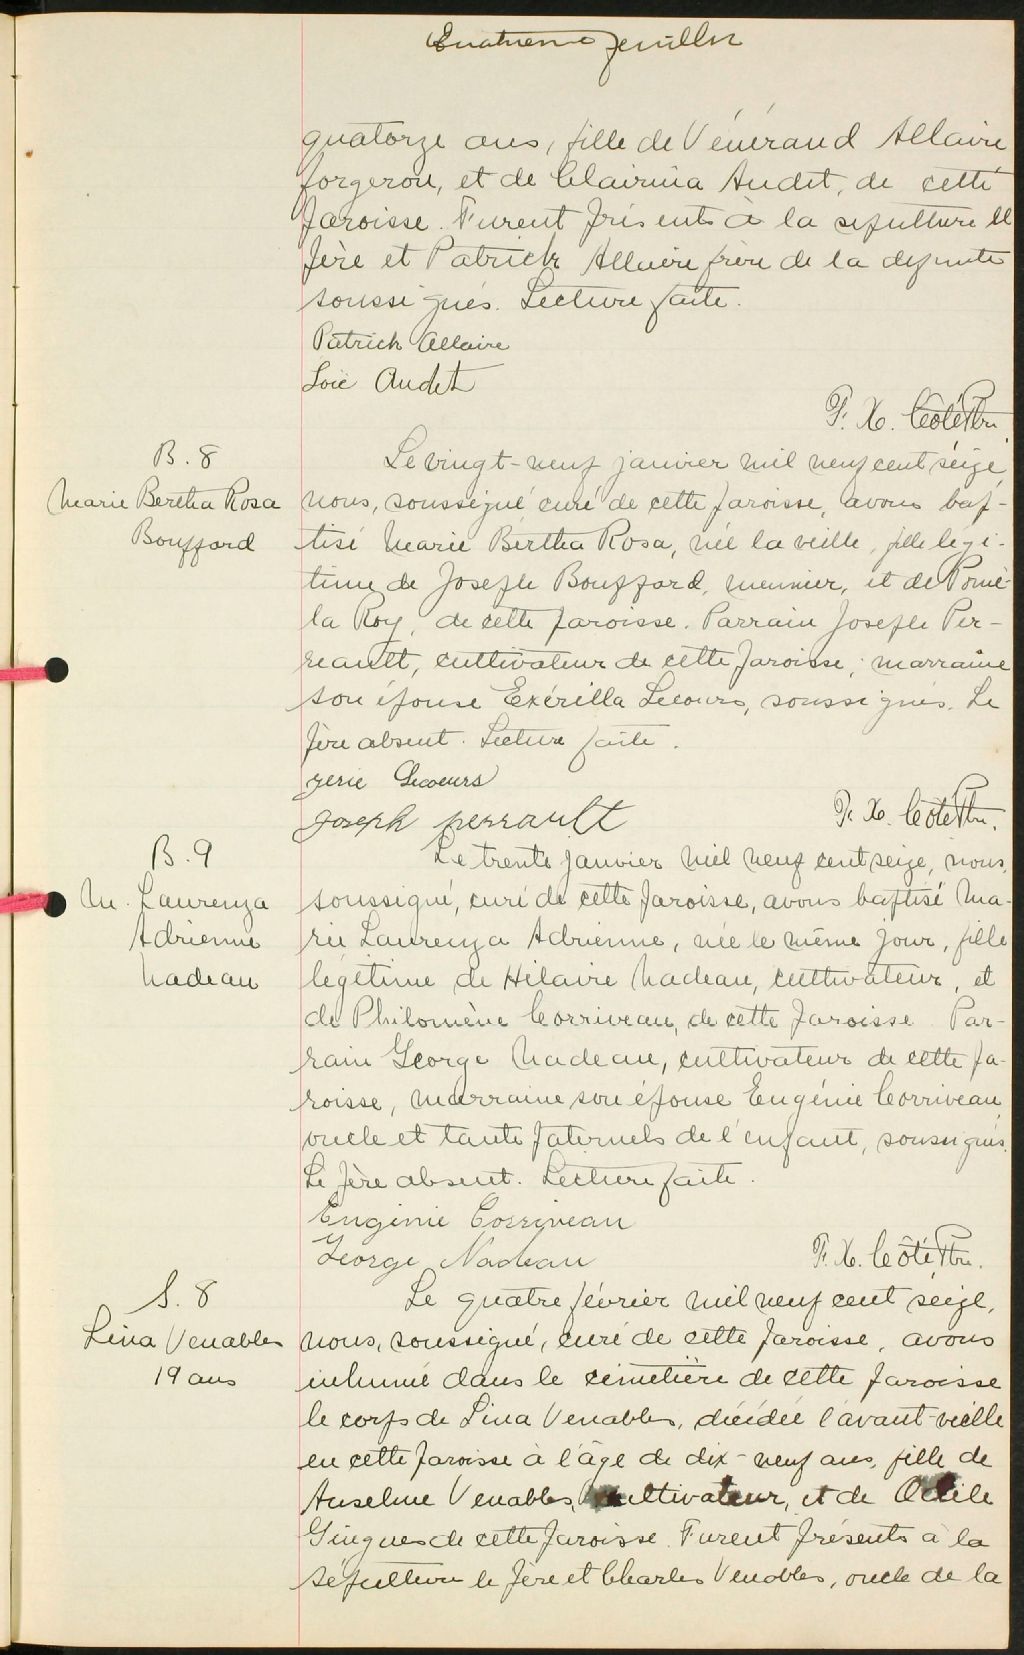 Quatrième feuillet
quatorze ans, fille de Vénérand Allaire
forgeron, et de Clairina Audet, de cette
paroisse. Furent présents à la sépulture le
père et Patrick Allaire frère de la defunte
soussignés. Lecture faite.
Patrick Allaire
Loïc Audet
F. X. Côté Ptre.
B. 8
Marie Bertha Rosa
Bouffard
Le vingt-neuf janvier mil neuf cent seize
nous, soussigné curé de cette paroisse, avons bap-
tisé Marie Bertha Rosa, née la veille, fille legi-
time de Joseph Bouffard, meunier, et de Pomé-
la Roy, de cette paroisse. Parrain Joseph Per-
reault, cultivateur de cette paroisse; marraine
son épouse Exérilla Lecours, soussignés. Le
père absent. Lecture faite.
zerie Lecours
joseph perrault
F. X. Côté Ptre.
B. 9
M. Laurenza
Adrienne
Nadeau
Le trente janvier mil neuf cent seize, nous,
soussigné, curé de cette paroisse, avons baptisé Ma-
rie Laurenza Adrienne, née le même jour, fille
légitime de Hilaire Nadeau, cultivateur, et
de Philomène Corriveau, de cette paroisse Par-
rain George Nadeau, cultivateur de cette pa-
roisse, marraine son épouse Eugénie Corriveau
oncle et tante paternels de l'enfant, soussignés.
Le père absent. Lecture faite.
Eugénie Corriveau
George Nadeau
F. X. Côté Ptre.
S. 8
Lina Venables
19 ans
Le quatre février mil neuf cent seize,
nous, soussigné, curé de cette paroisse, avons
inhumé dans le cimetière de cette paroisse
le corps de Lina Venables, décédée l'avant-veille
en cette paroisse à l'âge de dix-neuf ans, fille de
Anselme Venables, cultivateur, et de Odile
Gingues de cette paroisse. Furent présents à la
sépulture le père et Charles Venables, oncle de la